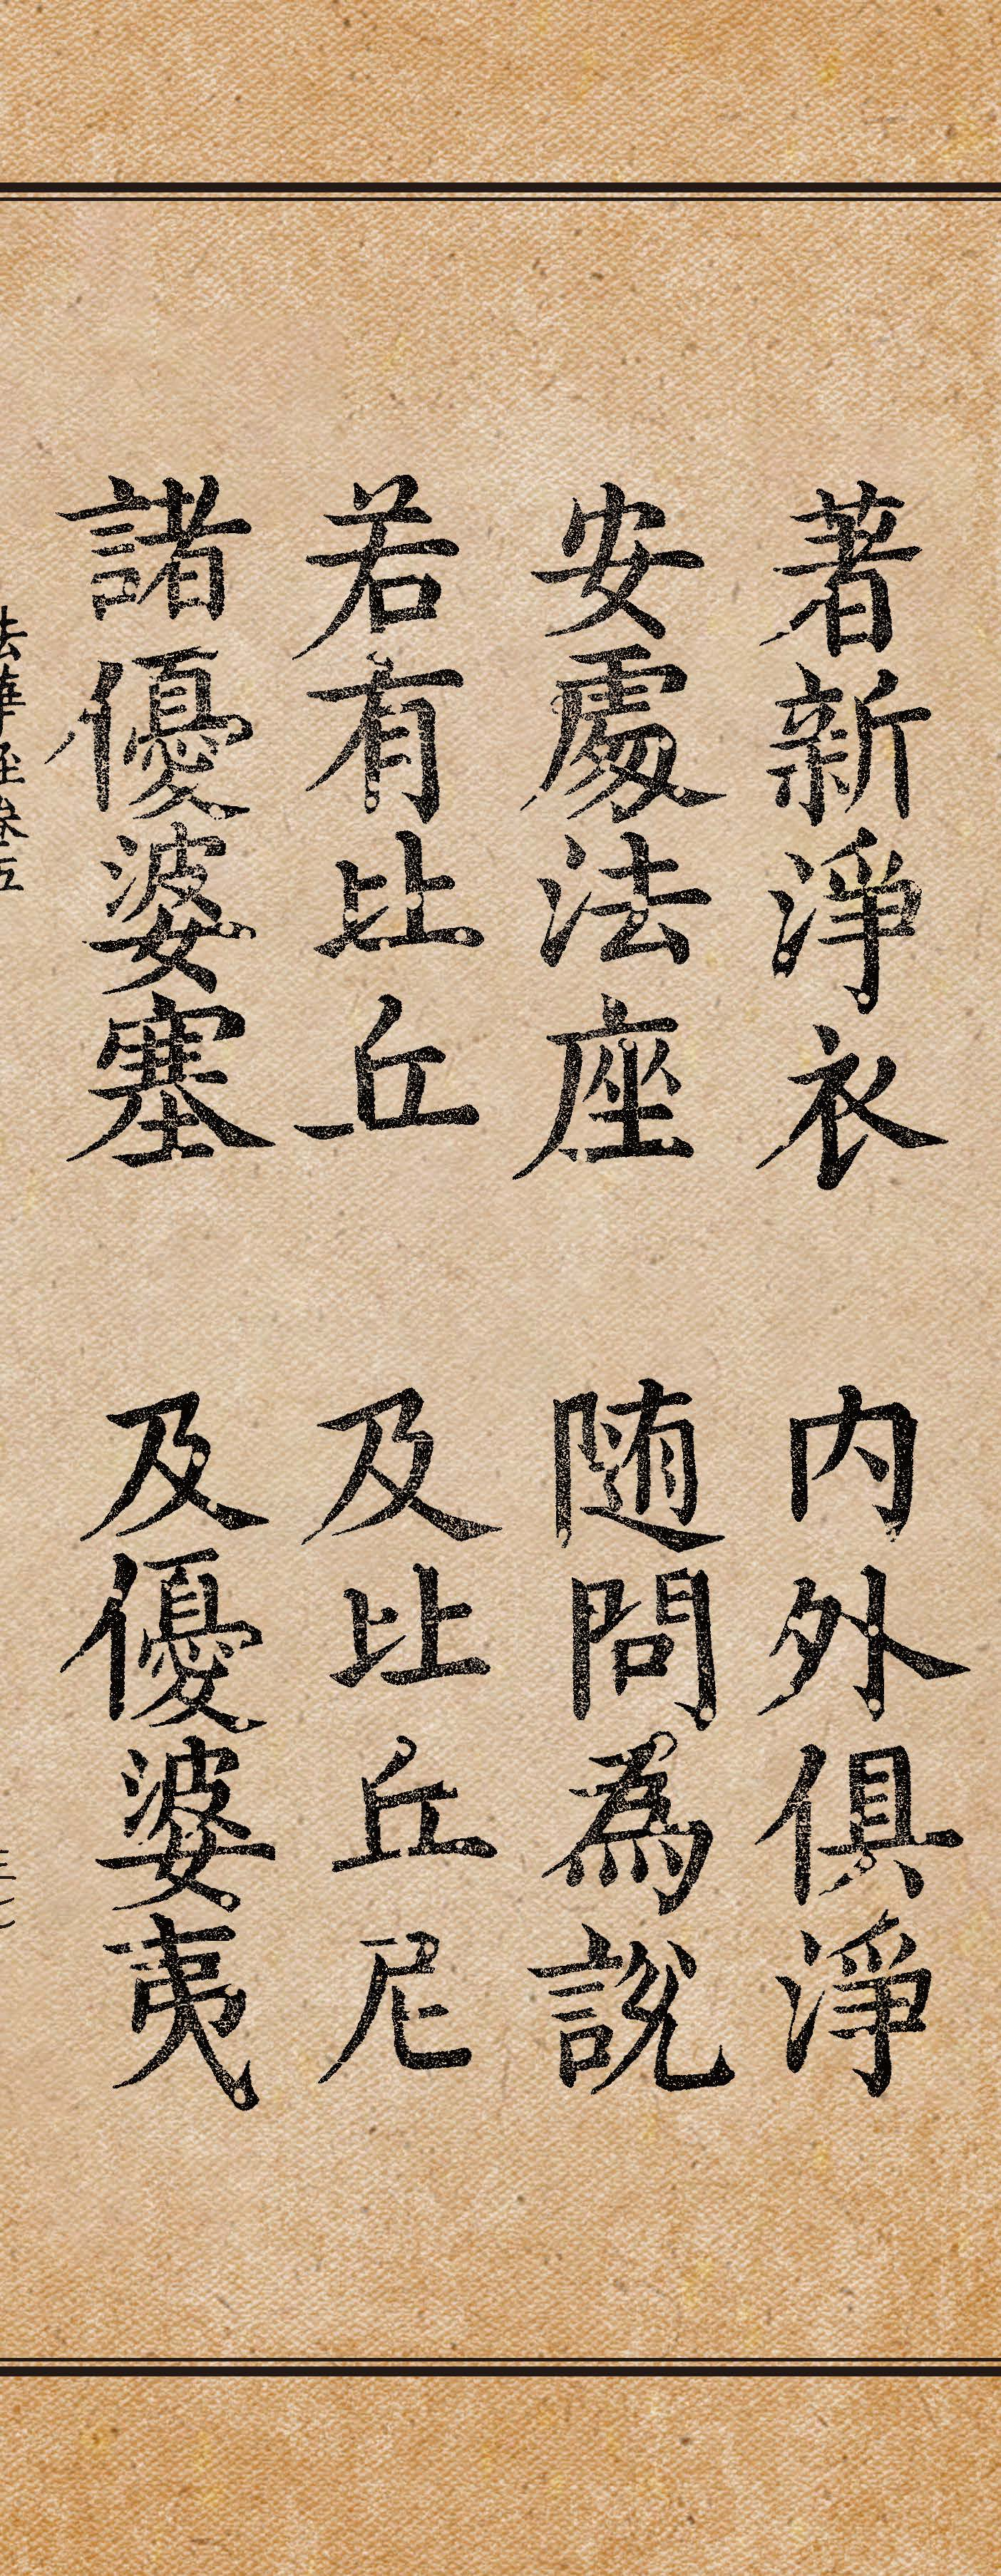 著新淨衣 內外俱淨
安處法座 随問為說
若有比丘 及比丘尼
諸優婆塞 及優婆夷
法華経巻五